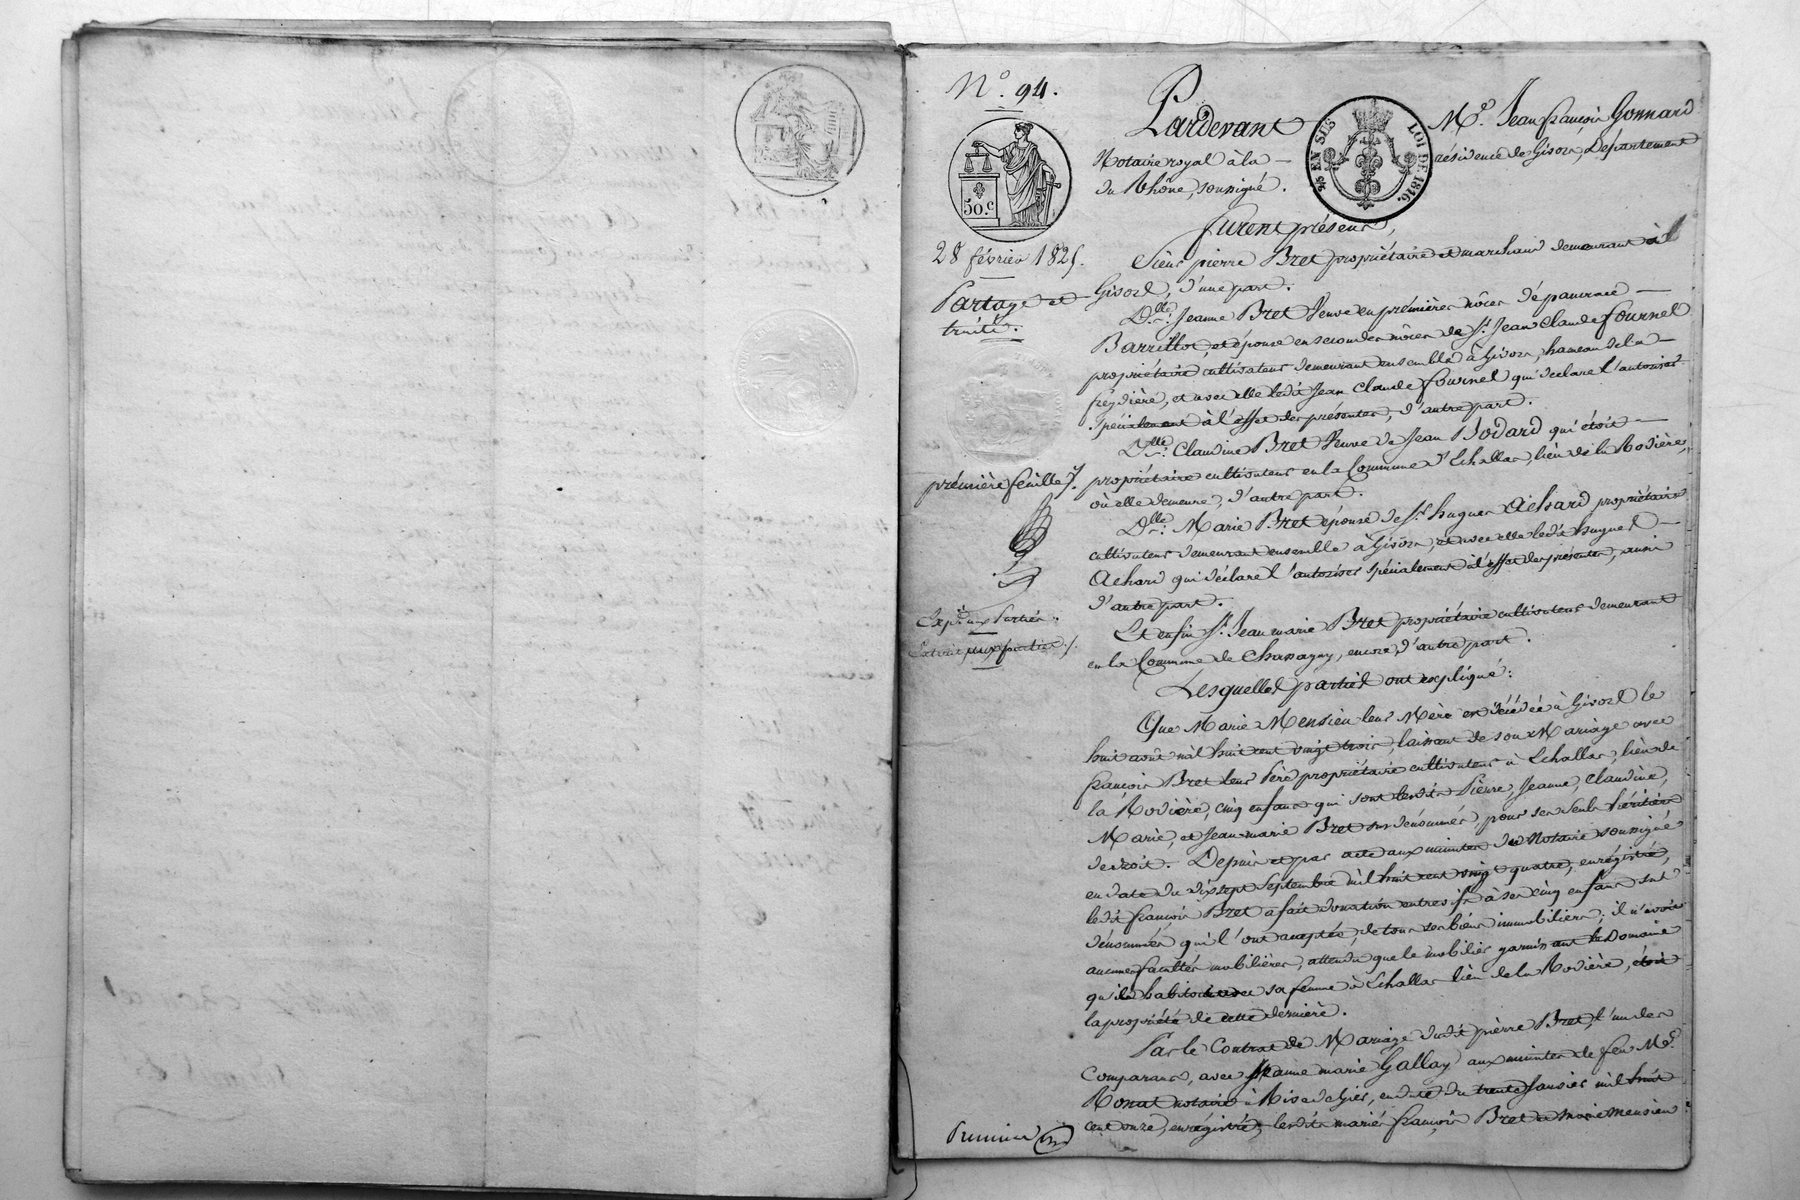 N.° 94.
Pardevant Me. Jean françois Gonnard
EN SUS LOI DE 1816.
Notaire royal à la résidence de Givors, Département
du Rhône, soussigné.
50.c
28 février 1825.
Partage et
traité.
première feuille
Expé. aux Parties.
furent présens,
Sieur pierre Bret propriétaire et marchand demeurant à
Givors, d'une part.
Dlle. Jeanne Bret Veuve en premières nôces d'épaurace
Barrillot, et épouse en secondes nôces de Sr. Jean Claude fournel
propriétaire cultivateur demeurant ensemble à Givors, hameau de la
freydière, et avec elle ledit Jean Claude fournel qui déclare l'autoriser
spécialement à l'effet des présentes, d'autre part.
Dlle. Claudine Bret Veuve de Jean Bodard qui étoit
propriétaire cultivateur en la Commune d'Echallas, lieu de la Rodière,
où elle demeure, d'autre part.
Dlle. Marie Bret épouse de Sr. hugues Achard propriétaire
cultivateur demeurant ensemble à Givors, et avec elle ledit hugues
Achard qui déclare l'autoriser spécialement à l'effet des présentes, aussi
d'autre part.
Et enfin Sr. Jean marie Bret propriétaire cultivateur demeurant
en la Commune de Chassagny, encore d'autre part.
Lesquelles parties ont expliqué:
Que Marie Mensieu leur Mère est décédée à Givors le
huit août mil huit cent vingt trois, laissant de son Mariage avec
françois Bret leur Père propriétaire cultivateur à Echallas, lieu de
la Rodière, cinq enfans qui sont lesdits Pierre, Jeanne, Claudine,
Marie, et Jean-marie Bret sus dénommés, pour ses seuls héritiers
de droit. Depuis et par acte aux minutes du Notaire soussigné
en date du dixsept Septembre mil huit cent vingt quatre, enrégistré,
ledit françois Bret a fait donation entrevifs à ses cinq enfans sus
dénommés qui l'ont acceptée, de tous ses biens immobiliers; il n'avoit
aucunes facultés mobilières, attendu que le mobilier garnissant le Domaine
qu'il habitoit avec sa femme à Echallas lieu de la Rodière, étoit
la propriété de cette dernière.
Par le Contrat de Mariage dudit pierre Bret, l'un des
comparans, avec Jeanne marie Gallay aux minutes de feu Me.
notaire à Rivedegier, en date du trente Janvier mil huit
cent onze, enrégistré, lesdits mariés françois Bret et marie mensieu
Première